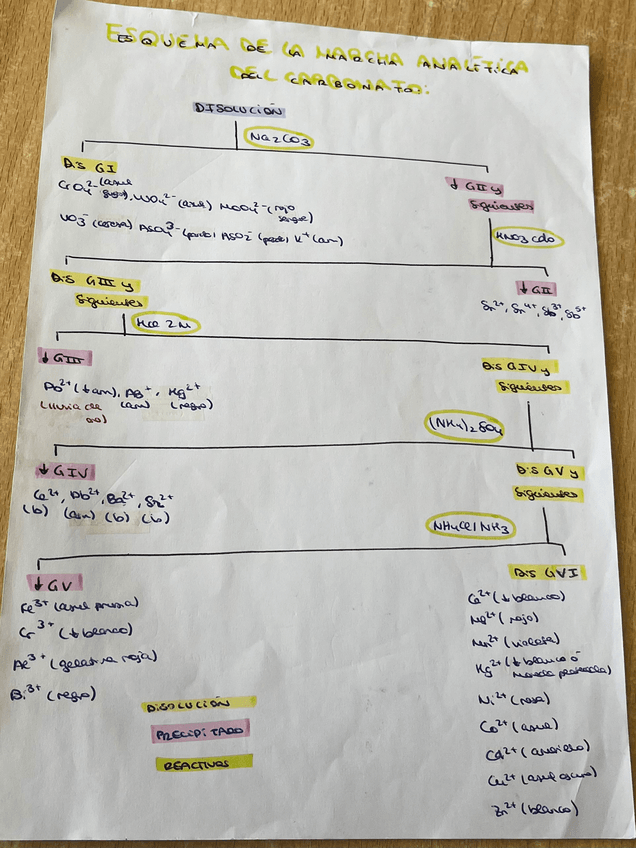 ESQUEMA DE LA MARCHA ANALÍTICA
DEL CARBONATO:
DISOLUCIÓN
Na2CO3
Dis GI
CrO4²⁻ (azul
), WO4²⁻ (azul) MoO4²⁻ (rojo
sangre)
VO3⁻ AsO4³⁻ (pardo) AsO2⁻ (pardo) K⁺ (am)
↓ GII y
Siguientes
HNO3 cdo
Dis GIII y
Siguientes
↓ GII
Sn²⁺, Sn⁴⁺, Sb³⁺, Sb⁵⁺
HCl 2N
↓ GIII
Pb²⁺ (↓ am), Ag⁺, Hg²⁺
(lluvia de
oro) (am) (negro)
Dis GIV y
Siguientes
(NH4)2SO4
↓ GIV
Ca²⁺, Pb²⁺, Ba²⁺, Sr²⁺
(b) (am) (b) (b)
Dis GV y
Siguientes
NH4Cl/NH3
↓ GV
Fe³⁺ (azul prusia)
Cr³⁺ (↓ blanco)
Al³⁺ (gelatina roja)
Bi³⁺ (negro)
Dis GVI
Ca²⁺ (↓ blanco)
Mg²⁺ (rojo)
Mn²⁺ (violeta)
Hg²⁺ (↓ blanco ó
plateada)
Ni²⁺ (rosa)
Co²⁺ (azul)
Cd²⁺ (amarillo)
Cu²⁺ (azul oscuro)
Zn²⁺ (blanco)
DISOLUCIÓN
PRECIPITADO
REACTIVOS